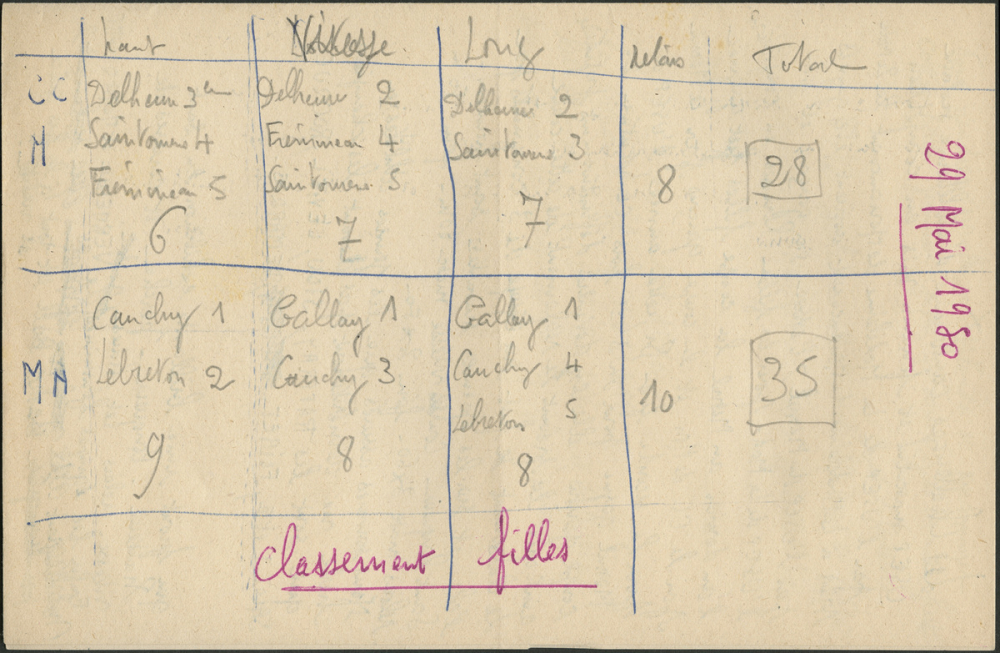 haut Vitesse Long relais Total
CC Delheure 3em Delheure 2 Delheure 2
M Saintomene 4 Frémineau 4 Saintomene 3
Frémineau 5 Saintomene 5
6 7 7 8 28
Cauchy 1 Gallay 1 Gallay 1
MM Lebreton 2 Cauchy 3 Cauchy 4
Lebreton 5
9 8 8 10 35
classement filles
29 Mai 1950